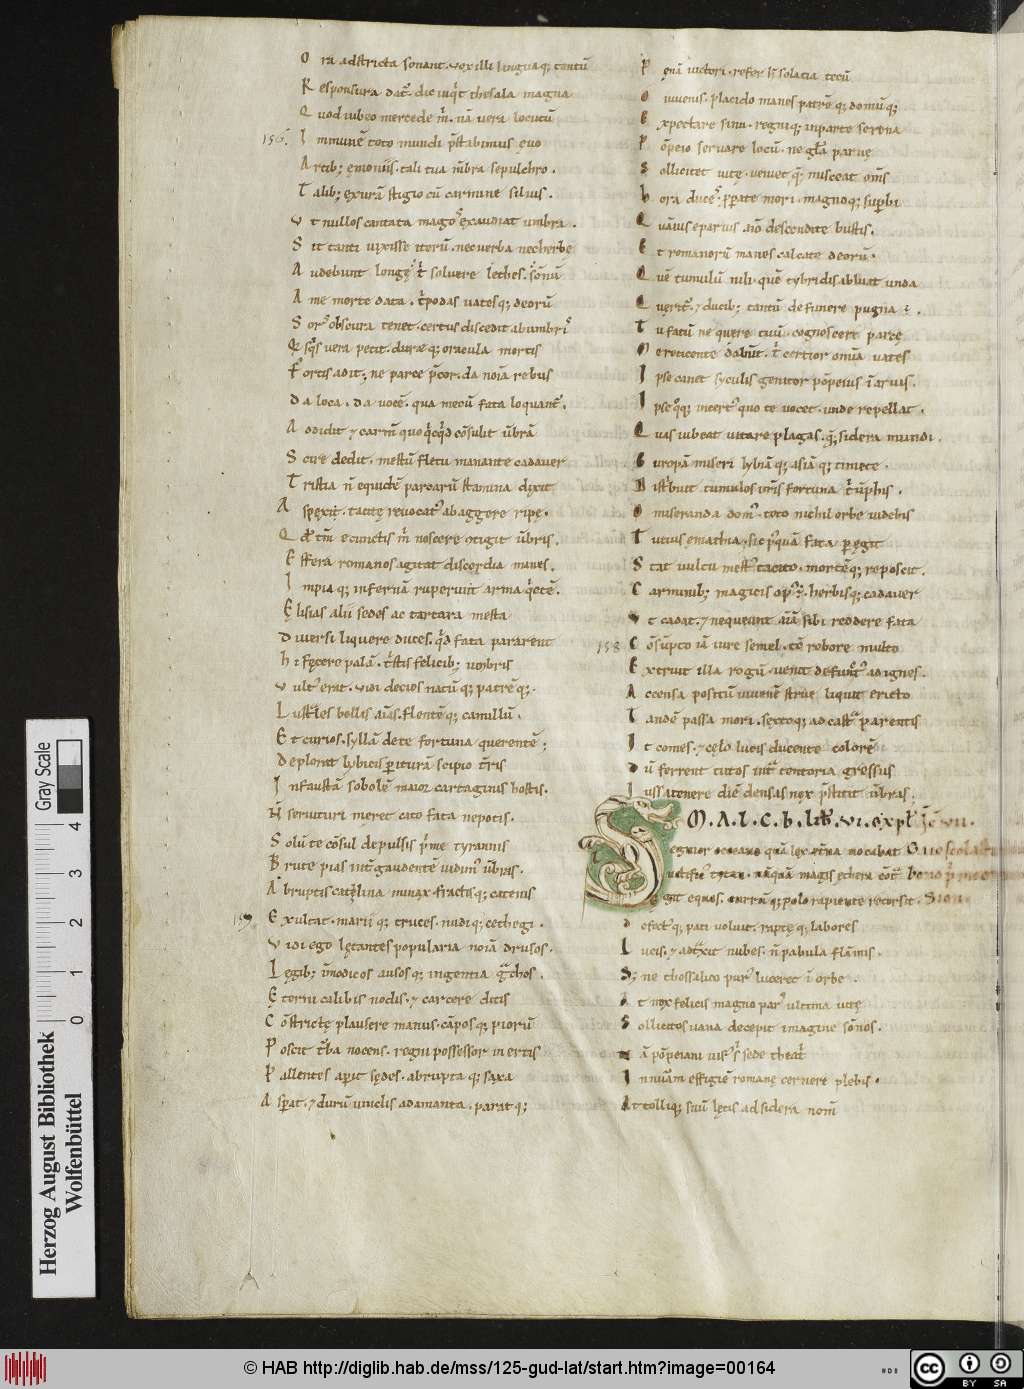 Ora adstricta sonant. vox illi linguaq; tantū
Responsura dat̃. dic inqͥt thesala magna
Quod iubeo mercede m̃. nā veri locutū
156.
Immunē toto mundi p̃stabimus ęuo
Artib; ęmoniis. tali tua m̃bra sepulchro.
Talib; ęxurā stigio cū carmine siluis.
Vt nullos cantata magoˀ exaudiat umbra.
Sit tanti uixisse iterū. nec uerba nec herbę
Audebunt longę t̃ soluere lethes. sōnū
A me morte data. t̃podas uatesq; deorū
Sorˢ obscura tenet. certus discedit ab umbrıˢ
Qsqͥs vera petit. duraeq; oracula mortis
Fortis adit; ne parce p̃cor. da noīa rebus
Da loca. da vocē. qua mecū fata loquant̃.
Addidit ⁊ carm̄ quo qͥcqͥd cōsulit ūbrā
Scire dedit. mestū fletu manante cadauer
Tristia ñ equidē parcarū stamina dıxit
Aspęxit. tacitę reuocatˀ ab aggere ripę.
Qd̃ tm̃ e cunctis m̃ noscere cōtigit ūbris.
Effera romanos agitat discordia manes.
Impiaq; infernā ruperunt arma qͥetē.
Elisias alii sedes ac tartara mesta
Diuersi liquere duces. qͥd fata pararent
Hi fęcere palā. t̃stis felicib; vmbris
Vultˀ erat. vidi decios natūq; patrēq;.
Lustrales bellis aīas. flentēq; camillū.
Et curios. syllā de te fortuna querentē;
Deplorat lybicis ꝑiturā scipio t̃ris
Infaustā sobolē maior cartaginis hostis.
Ñ seruituri meret cato fata nepotis.
Solū te cōsul depulsis p̃me tyrannis
Brute pias int̃ gaudentē uidimˀ ūbras.
Abruptis catĕlina minax fractisq; catenis
157.
Exultat. mariiq; truces. nudiq; cethegi.
Vidi ego lętantes popularia noīa drusos.
Lęgib; īmodicos ausosq; ingentia gͣchos.
Ęterni calibis nodis. ⁊ carcere ditis
Cōstrictę plausere manus. cāposq; piorū
Poscit t̃ba nocens. regni possessor inertis
Pallentes aꝑit sędes. abruptaq; saxa
Asꝑat. ⁊ durū vinclis adamanta. paratq;
Pęnā uictori. refer h̃ solacia tecū
O iuuenis. placido manes patrēq; domūq;
Expectare sinu. regniq; in parte serena
Pōpeio seruare locū. ne gl̃a paruę
Sollicitet uitę. veniet q̃ misceat om̃s
Hora ducˢ. ꝓꝑate mori. magnoq; suꝑbi
Quāuis e paruis. aīo descendite bustis.
Et romanorū manes calcate deorū.
Quē tumulū nili. quē tybridis abluat unda
Quęrit̃. ⁊ ducib; tantū de funere pugna ē.
Tu fatū ne quere tuū. cognoscere parcę
Me reticente dabūt. t̃ certior om̃a vates
Ipse canet syculis genitor pōpeius ī aruis.
Ipse qͦq; incertˀ quo te vocet. vnde repellat.
Quas iubeat uitare plagas. q̃ sidera mundi.
Europā miseri lybiāq; asiāq; timete.
Distͥbuit tumulos ur̃is fortuna tͥūphis.
O miseranda domˀ. toto nichil orbe videbis
Tutius emathia. sic pͥquā fata ꝑęgit
Stat uultu mestˀ tacito. mortēq; reposcit.
Carminib; magicis opˀ. herbisq; cadauer
Vt cadat. ⁊ nequeunt aīā sibi reddere fata
158
Cōsūpto iā iure semel. tc̄ robore multo
Extruit illa rogū. uenit defunctˀ ad ignes.
Accensa positū iuuenē strue liquit ericto
Tandē passa mori. sęxtoq; ad castͣ parentis
It comes. ⁊ cęlo lucis ducente colorē
Dū ferrent tutos intͣ tentoria gressus
Iussa tenere diē densas nox p̃stitit ūbras.
M. A. L. C. B. lib̃. vi. expł. Īc̄. vii.
Segnior oceano quā lęx ęt̃na uocabat
Luctificˀ tytan. nūquā magis ęthera cōt̃
Ęgit equos. currūq; polo rapiente recorsit.
Defectˀq; pati voluit. raptęq; labores
Lucis. ⁊ adtͣxit nubes. ñ pabula flāmis.
S; ne thossalico purˀ luceret ī orbe.
At nox felicis magno parˢ ultima uitę
Sollicitos uana decepit imagine sōnos.
Nā pōpeiani uisˀ sͥ sede theatͥ
Innūam effigiē romanę cernere plebis.
Attolliq; suū lętis ad sidera nom̄
Gray Scale
4 3 2 1 0
Herzog August Bibliothek
Wolfenbüttel
© HAB http://diglib.hab.de/mss/125-gud-lat/start.htm?image=00164
cc BY SA